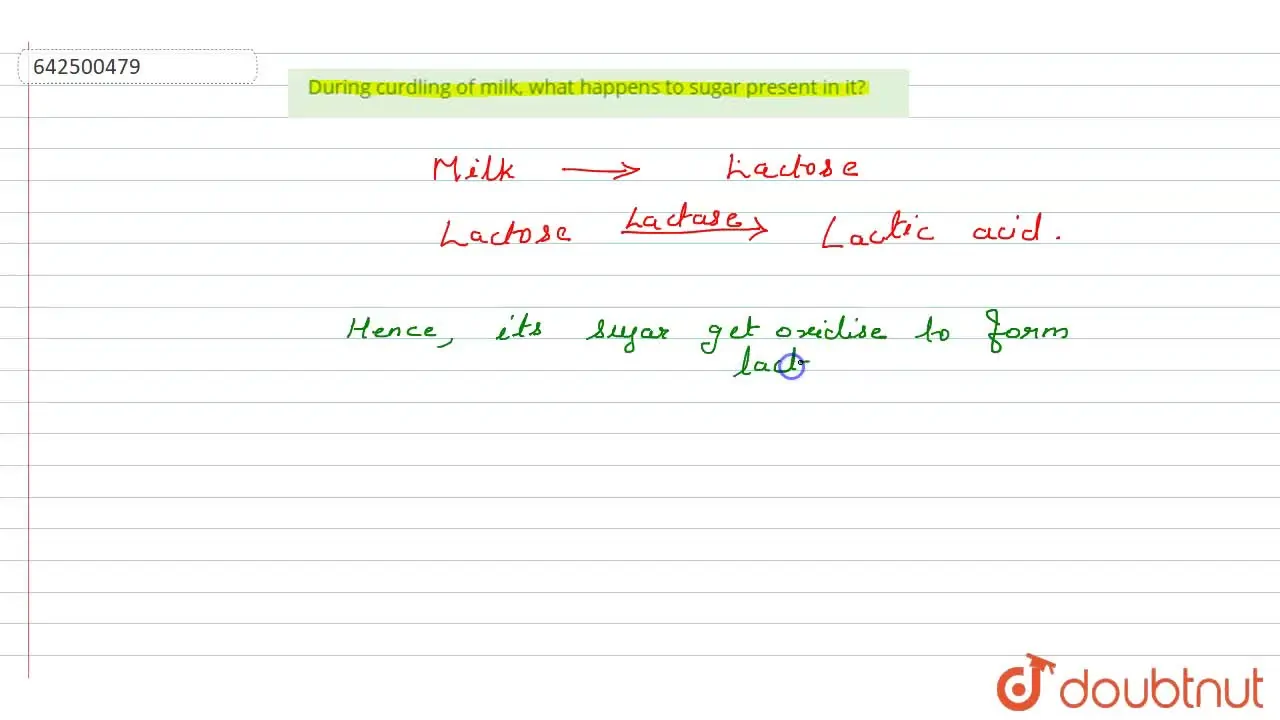 642500479
During curdling of milk, what happens to sugar present in it?
Milk → Lactose
Lactase
Lactose → Lactic acid.
Hence, its sugar get oxidise to form
lact
doubtnut